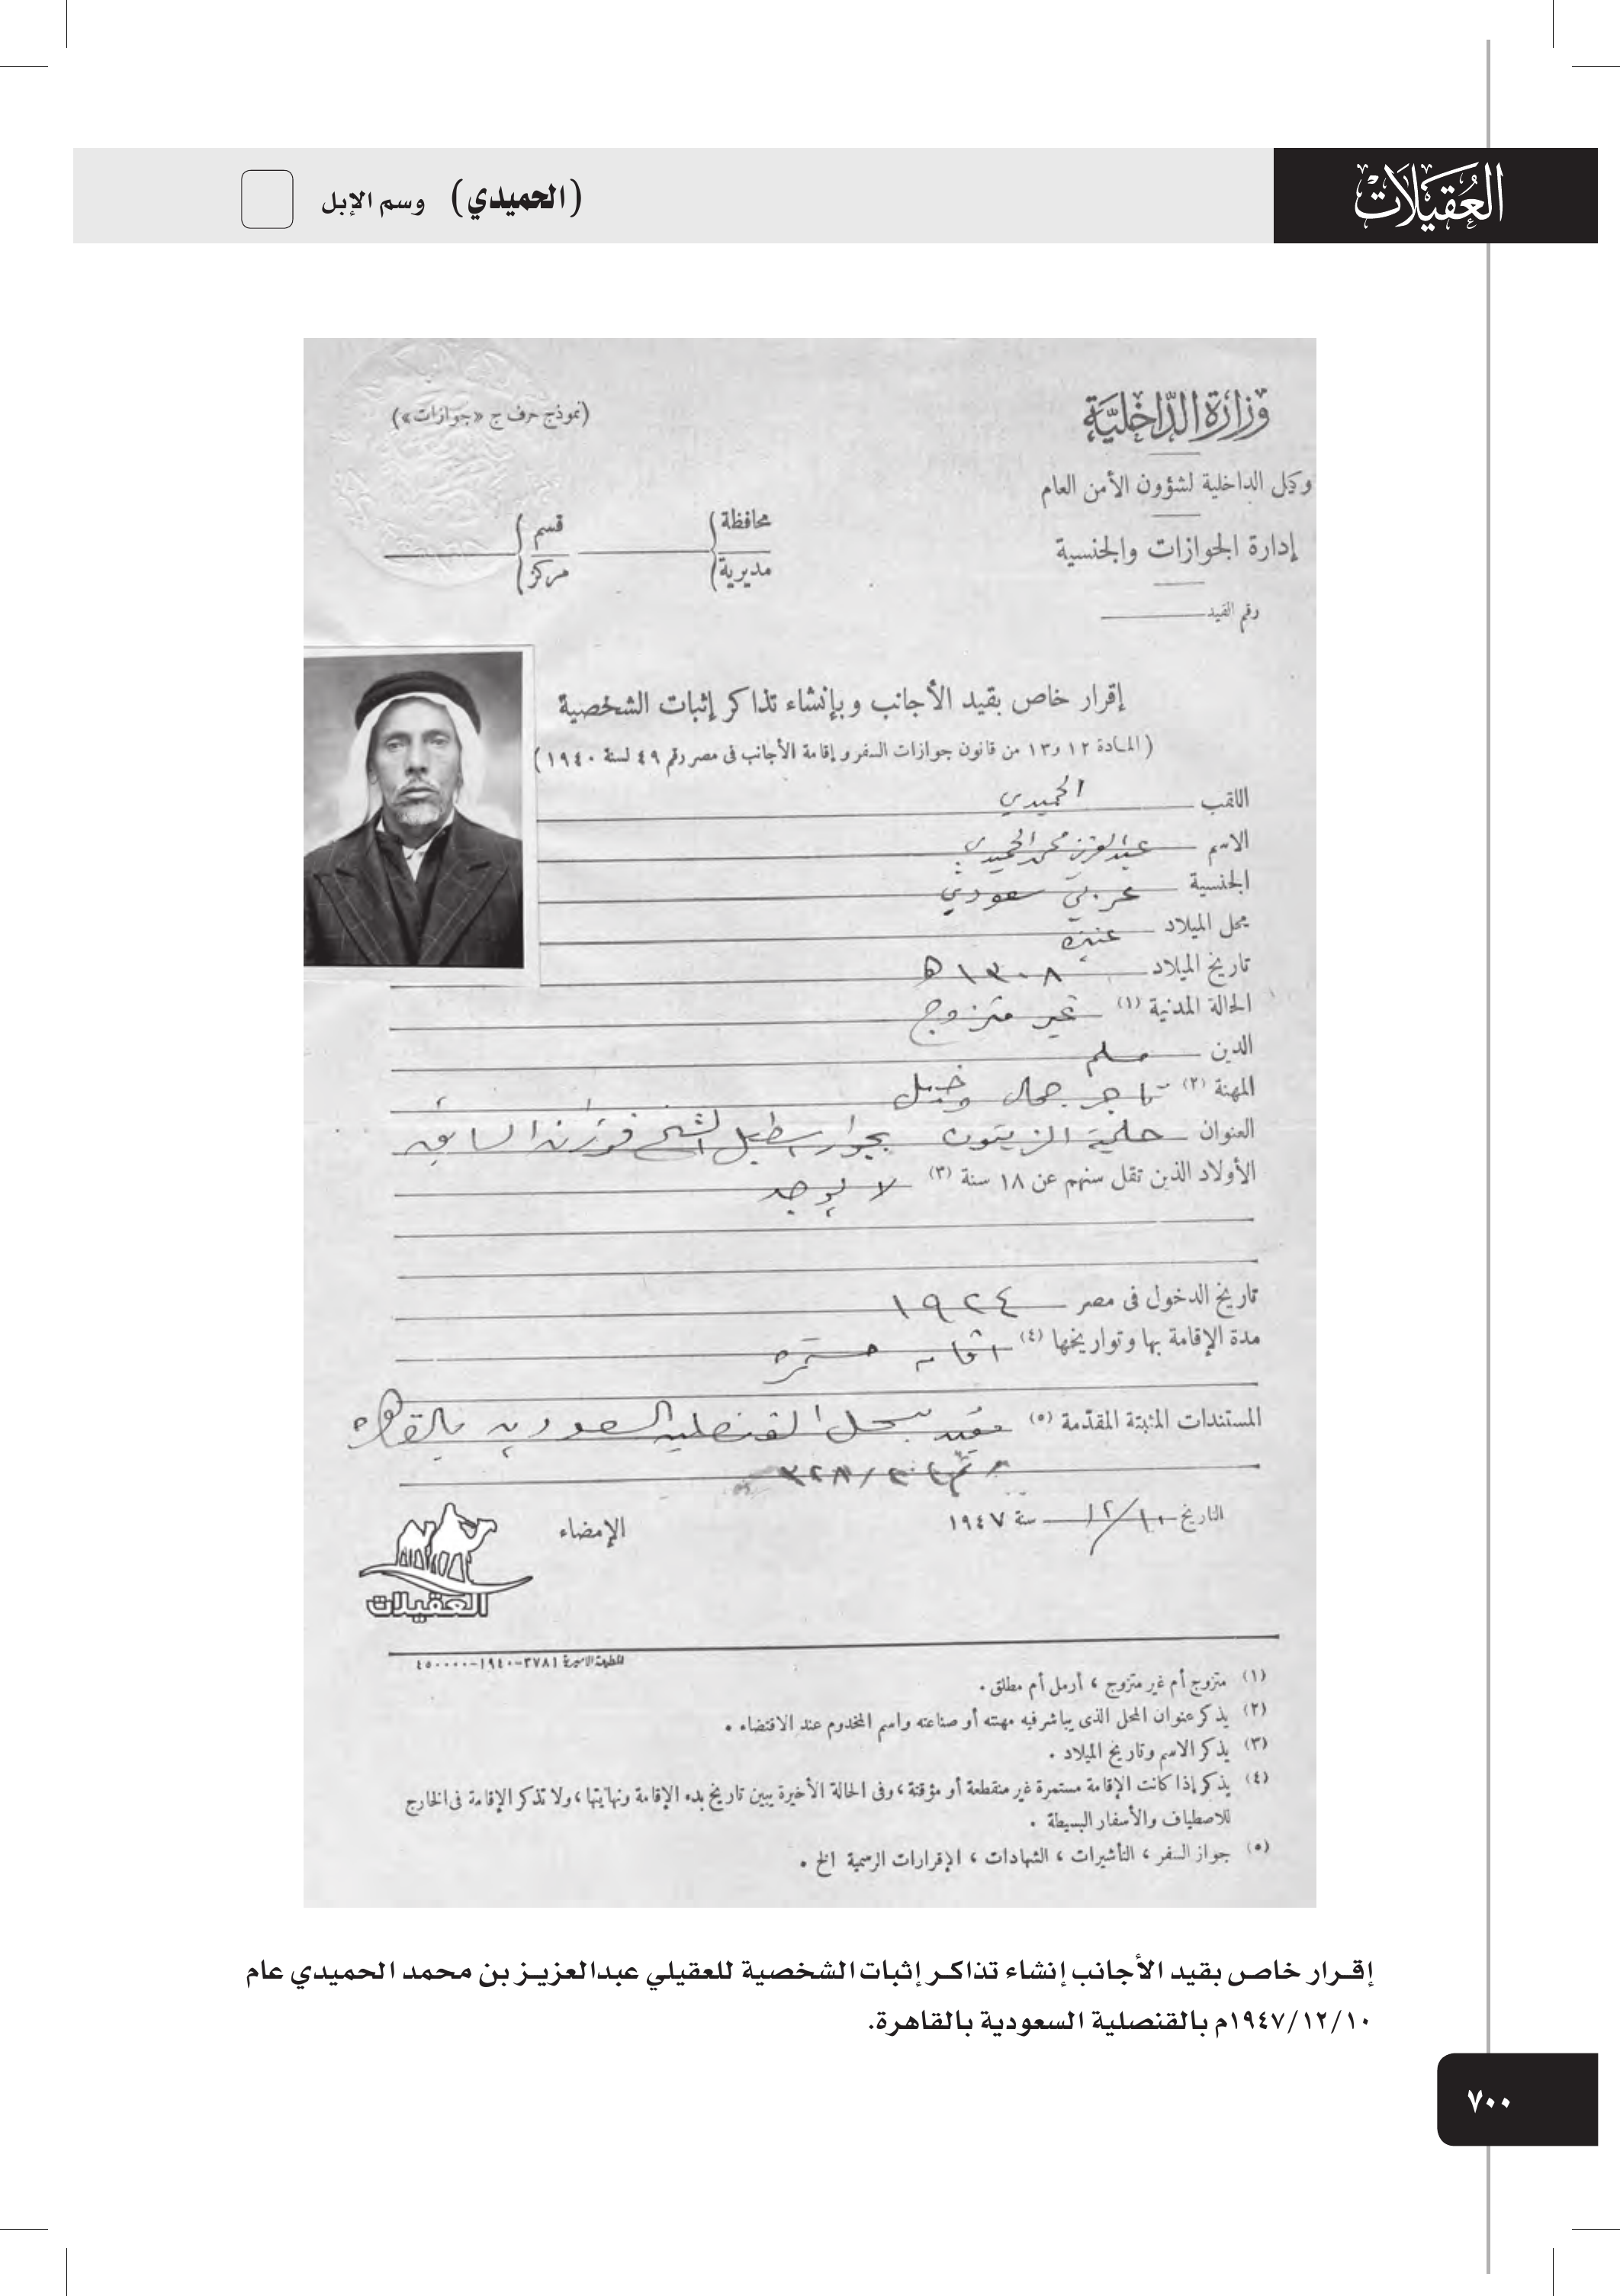 العُقَيْلَات
(الحميدي) وسم الإبل
وزارة الداخلية
(نموذج حرف ج «جوازات»)
وكيل الداخلية لشؤون الأمن العام
محافظة
مديرية
قسم
مركز
إدارة الجوازات والجنسية
رقم القيد
إقرار خاص بقيد الأجانب وبإنشاء تذاكر إثبات الشخصية
(المادة ١٢ و١٣ من قانون جوازات السفر و إقامة الأجانب فى مصر رقم ٤٩ لسنة ١٩٤٠)
اللقب الحميدي
الاسم عبدالعزيز محمد الحميدي
الجنسية عربي سعودي
محل الميلاد عنيزه
تاريخ الميلاد ١٣٠٨ ه
الحالة المدنية (١) غير متزوج
الدين مسلم
المهنة (٢) تاجر جمال وخيل
العنوان حلمية الزيتون بجوار اسطبل الشيخ فوزان السابق
الأولاد الذين تقل سنهم عن ١٨ سنة (٣) لا يوجد
تاريخ الدخول فى مصر ١٩٢٤
مدة الإقامة بها وتواريخها (٤) اقامه مستمره
المستندات المثبتة المقدّمة (٥) مقيد بسجل القنصليه السعوديه بالقاهره
التاريخ ١٢/١٠ سنة ١٩٤٧
الإمضاء
العقيلات
المطبعة الاميرية ٣٧٨١-١٩٤٠-٤٥٠٠٠٠
(١) متزوج أم غير متزوج ، أرمل أم مطلق .
(٢) يذكر عنوان المحل الذى يباشر فيه مهنته أو صناعته واسم المخدوم عند الاقتضاء .
(٣) يذكر الاسم وتاريخ الميلاد .
(٤) يذكر إذا كانت الإقامة مستمرة غير منقطعة أو مؤقتة ، وفى الحالة الأخيرة يبين تاريخ بدء الإقامة ونهايتها ، ولا تذكر الإقامة فى الخارج
للاصطياف والأسفار البسيطة .
(٥) جواز السفر ، التأشيرات ، الشهادات ، الإقرارات الرسمية الخ .
إقـرار خاص بقيد الأجانب إنشاء تذاكـر إثبات الشخصية للعقيلي عبدالعزيـز بن محمد الحميدي عام
١٩٤٧/١٢/١٠م بالقنصلية السعودية بالقاهرة.
٧٠٠